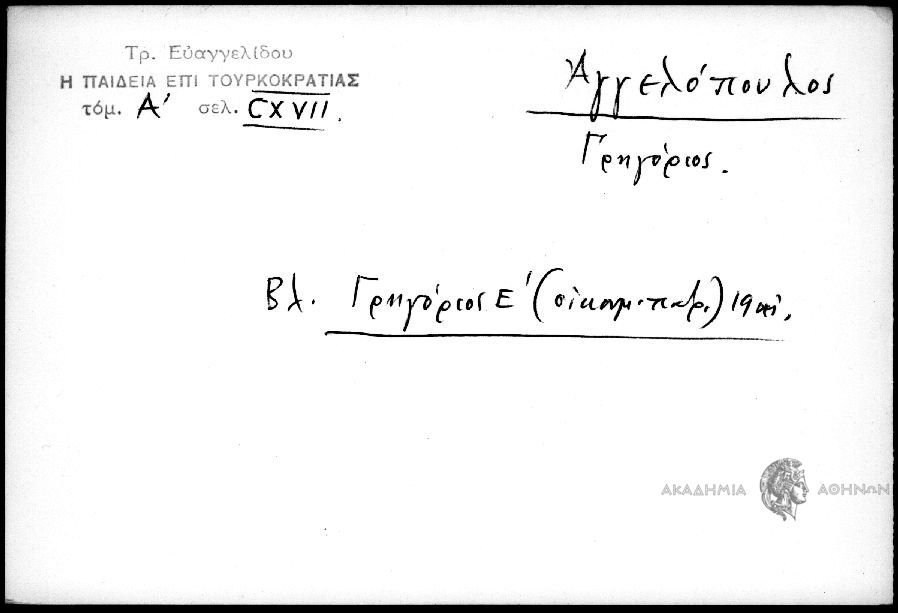 Τρ. Εὐαγγελίδου
Η ΠΑΙΔΕΙΑ ΕΠΙ ΤΟΥΡΚΟΚΡΑΤΙΑΣ
τόμ. Α' σελ. CXVII.
Ἀγγελόπουλος
Γρηγόριος.
Βλ. Γρηγόριος Ε' (οἰκουμ. πατρ.) 19
ΑΚΑΔΗΜΙΑ ΑΘΗΝΩΝ